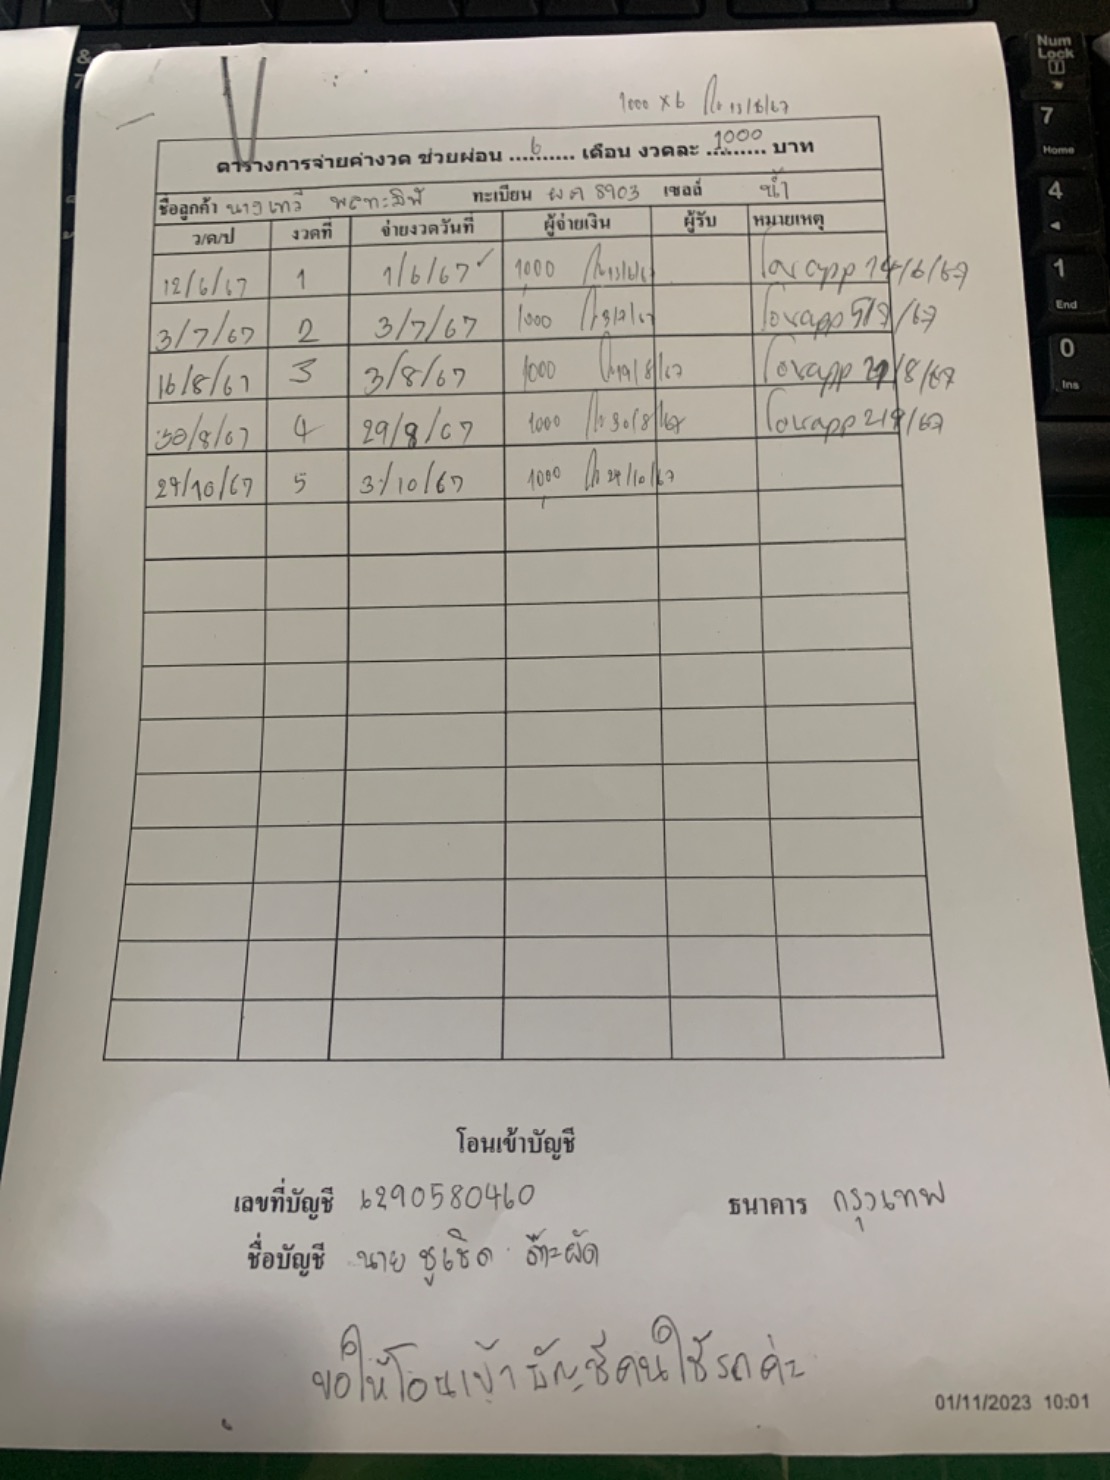 1000 x 6
ตารางการจ่ายค่างวด ช่วยผ่อน ....6.... เดือน งวดละ ...1000... บาท
ชื่อลูกค้า นางเทวี ทะเบียน ผค 8903 เซลล์ น้ำ
ว/ด/ป งวดที่ จ่ายงวดวันที่ ผู้จ่ายเงิน ผู้รับ หมายเหตุ
12/6/67 1 1/6/67 1000 โอนapp 14/6/67
3/7/67 2 3/7/67 1000 3/7/67 โอนapp 5/7/67
16/8/67 3 3/8/67 1000 19/8/67 โอนapp 21/8/67
30/8/67 4 29/8/67 1000 30/8/67 โอนapp 2/9/67
29/10/67 5 3/10/67 1000 29/10/67
โอนเข้าบัญชี
เลขที่บัญชี 6290580460 ธนาคาร กรุงเทพ
ชื่อบัญชี นาย ชูเชิด ต๊ะผัด
ขอให้โอนเข้าบัญชีคนใช้รถค่ะ
01/11/2023 10:01
Num
Lock
7
Home
4
1
End
0
Ins